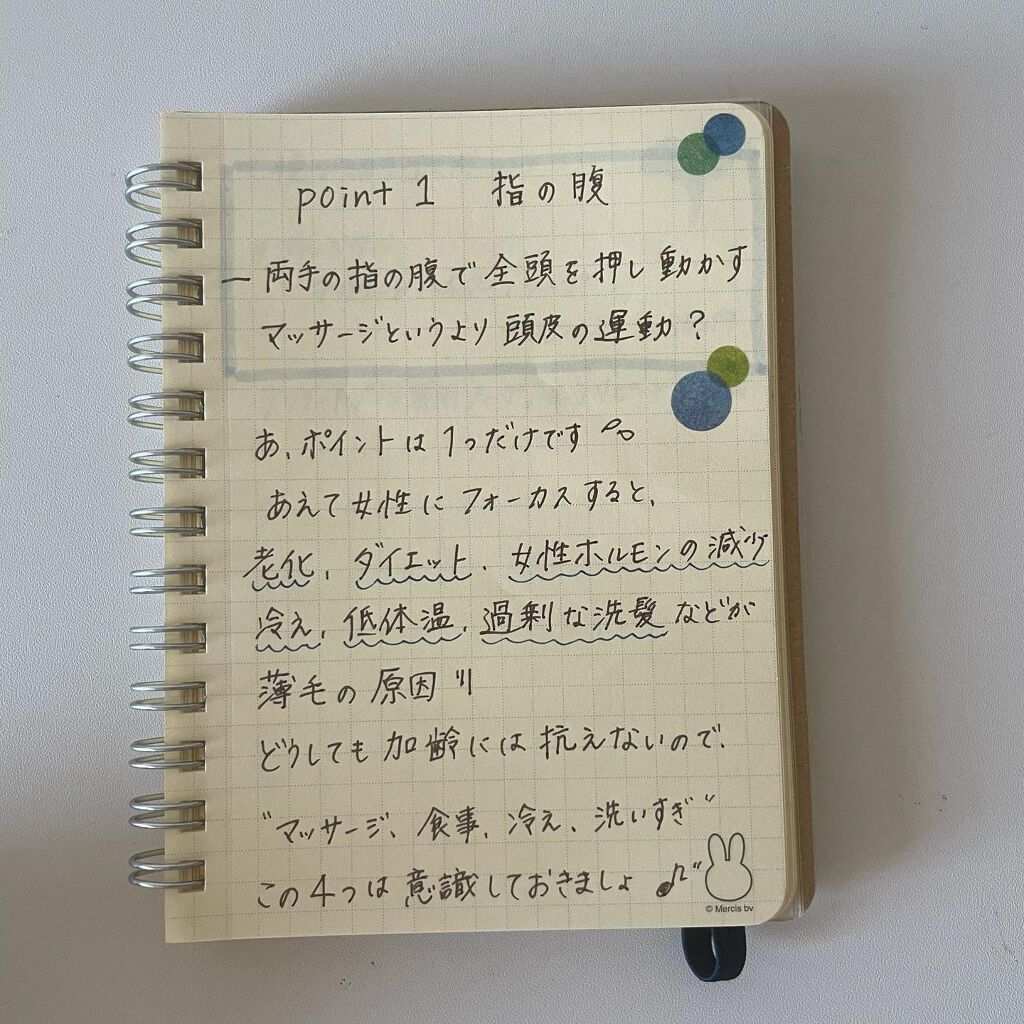 point 1 指の腹
― 両手の指の腹で全頭を押し動かす
マッサージというより頭皮の運動？
あ、ポイントは1つだけです
あえて女性にフォーカスすると、
老化、ダイエット、女性ホルモンの減少
冷え、低体温、過剰な洗髪などが
薄毛の原因!!!
どうしても加齢には抗えないので、
"マッサージ、食事、冷え、洗いすぎ"
この4つは意識しておきましょ♪"
© Mercis bv